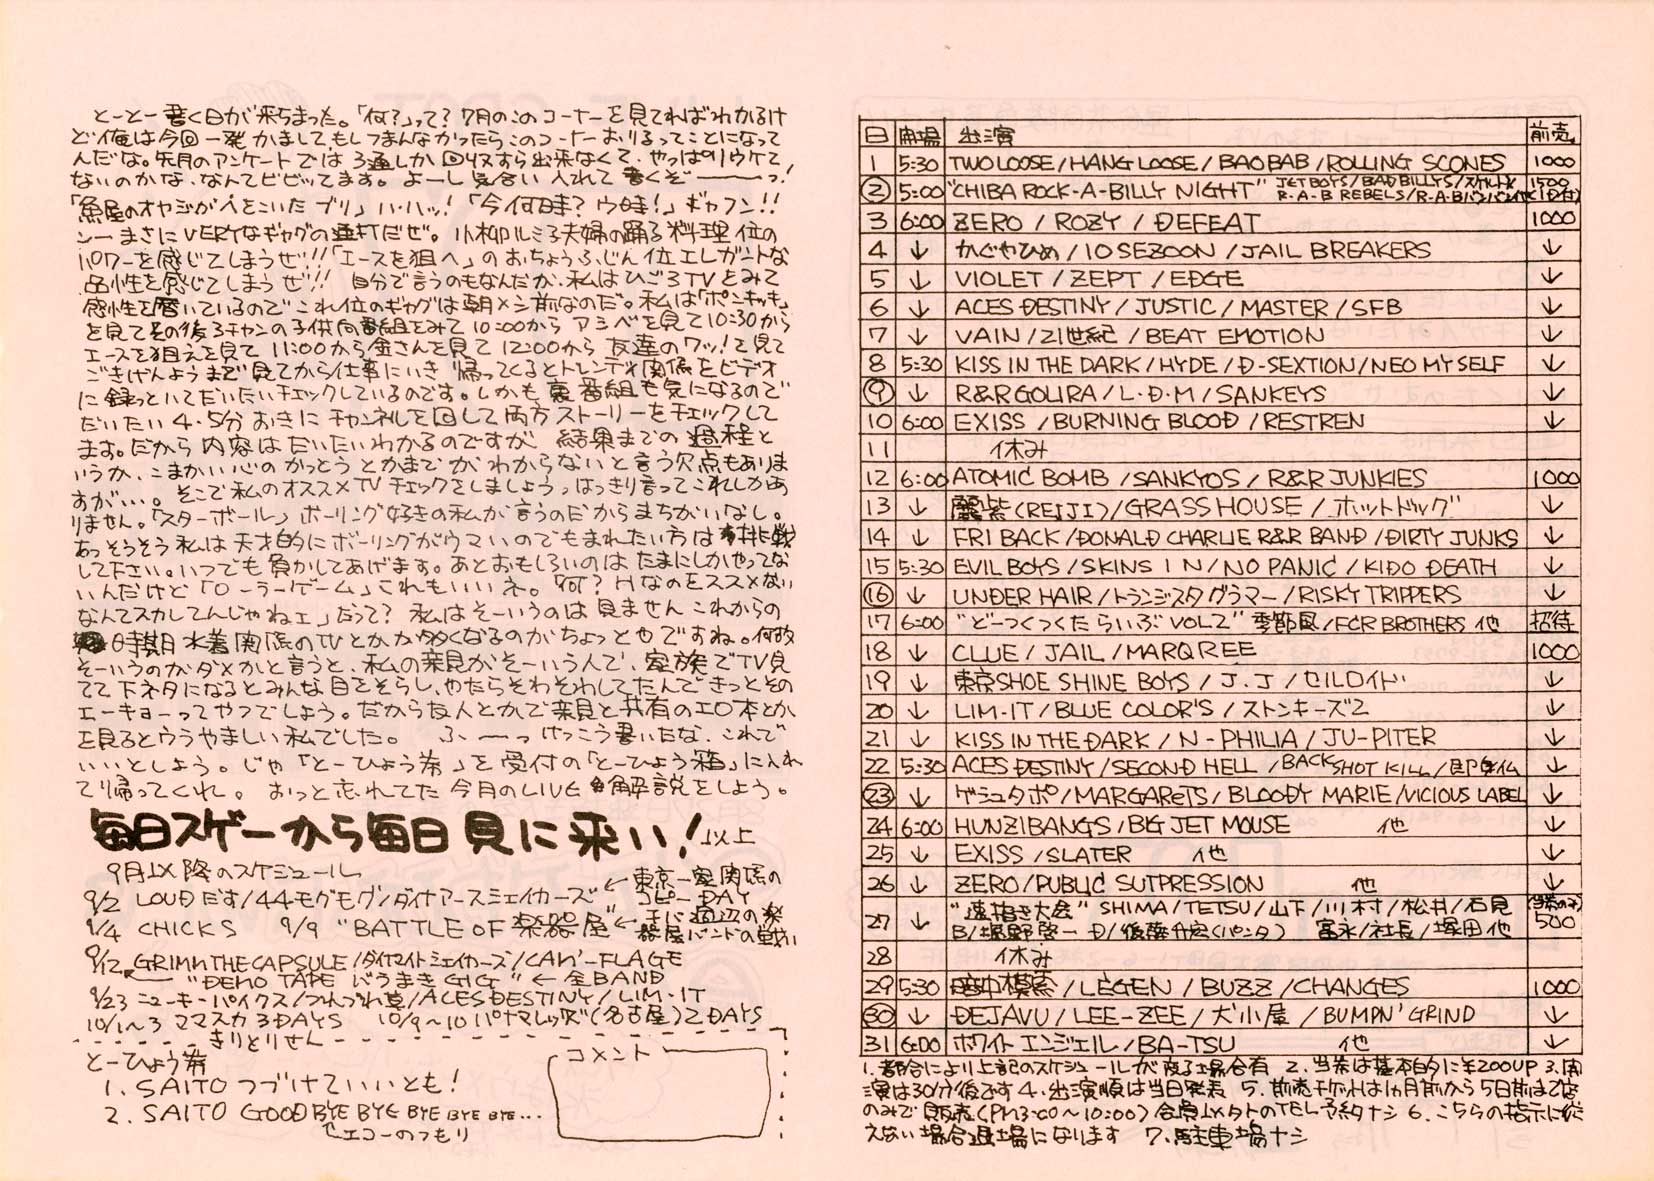 とーとー書く日が来ちまった。「何?」って? 7月のこのコーナーを見てればわかるけ
ど俺は今回一発かましてもしつまんなかったらこのコーナーおりるってことになって
んだな。先月のアンケートでは3通しか回収すら出来なくて、やっぱりウケて
ないのかな、なんてビビッてます。よーし気合い入れて書くぞ――っ!
「魚屋のオヤジがへをこいた ブリ」ハ・ハッ!「今何時? ウ時!」ギャフン!!
ン― まさにVERYなギャグの連打だぜ。小柳ルミ子夫婦の踊る料理位の
パワーを感じてしまうぜ!!「エースを狙へ」のおちょうふじん位エレガントな
品性を感じてしまうぜ!! 自分で言うのもなんだが、私はひごろTVをみて
感性を磨いているのでこれ位のギャグは朝メシ前なのだ。私は「ポンキッキ」
を見てその後3チャンの子供向番組をみて10:00からアシベを見て10:30から
エースを狙えを見て 11:00から金さんを見て 12:00から友達のワッ!を見て
ごきげんようまで見てから仕事にいき 帰ってくるとトレンディ関係をビデオ
に録っといてだいたいチェックしているのです。しかも裏番組も気になるので
だいたい4・5分おきにチャンネルを回して両方ストーリーをチェックして
ます。だから内容はだいたいわかるのですが 結果までの過程と
いうか、こまかい心のかっとうとかまでがわからないと言う欠点もありま
すが…。そこで私のオススメTVチェックをしましょう。はっきり言ってこれしかあ
りません。「スターボール」ボーリング好きの私が言うのだからまちがいなし。
あっそうそう私は天才的にボーリングがウマいのでもまれたい方は挑戦
して下さい。いつでも負かしてあげます。あとおもしろいのはたまにしかやってな
いんだけど「ローラーゲーム」これもいいネ。「何? Hなのをススメない
なんてスカしてんじゃねェ」だって? 私はそーいうのは見ません これからの
時期 水着関係のTVとかが多くなるのがちょっとやですね。何故
そーいうのがダメかと言うと、私の親見がそーいう人で、家族でTV見
てて下ネタになるとみんな目をそらし、やたらそわそわしてたんできっとその
エーキョーってやつでしょう。だから友人とかで親と共有のエロ本とか
を見るとウラやましい私でした。 ふ、――っ けっこう書いたな、これで
いいとしよう。じゃ「とーひょう券」を受付の「とーひょう箱」に入れ
て帰ってくれ。 おっと忘れてた 今月のLIVE 解説をしよう。
毎日スゲーから毎日見に来い! 以上
9月以降のスケジュール
9/2 LOUDだす/44モグモグ/ダイナアースシェイカーズ ← 東京一家関係のコピーDAY
9/4 CHICKS 9/9 "BATTLE OF 楽器屋" ← 主に週辺の楽器屋バンドの戦い
9/12 GRIMN THE CAPSULE/ダイナマイトシェイカーズ/CAM'-FLAGE
"DEMO TAPE ばらまきGIG" ← 全BAND
9/23 ニューキーパイクス/つれづれ草/ACES DESTINY/LIM-IT
10/1~3 ママスカ 3DAYS 10/9~10 パナマレッズ(名古屋)2DAYS
きりとりせん
とーひょう券
1. SAITO つづけていいとも!
2. SAITO GOODBYE BYE BYE BYE BYE...
↑エコーのつもり
コメント
日 開場 出演 前売
1 5:30 TWO LOOSE/HANG LOOSE/BAOBAB/ROLLING SCONES 1000
② 5:00 "CHIBA ROCK-A-BILLY NIGHT" JET BOYS/BAD BILLYS/スケルトンズ R-A-B REBELS/R-A-Bバンバン他 1500
3 6:00 ZERO/ROZY/DEFEAT 1000
4 ↓ かぐやひめ/10 SEZOON/JAIL BREAKERS ↓
5 ↓ VIOLET/ZEPT/EDGE ↓
6 ↓ ACES DESTINY/JUSTIC/MASTER/SFB ↓
7 ↓ VAIN/21世紀/BEAT EMOTION ↓
8 5:30 KISS IN THE DARK/HYDE/D-SEXTION/NEO MYSELF ↓
⑨ ↓ R&R GOLIRA/L・D・M/SANKEYS ↓
10 6:00 EXISS/BURNING BLOOD/RESTREN ↓
11 休み
12 6:00 ATOMIC BOMB/SANKYOS/R&R JUNKIES 1000
13 ↓ 麗紫(REIJI)/GRASS HOUSE/ホットドッグ ↓
14 ↓ FRI BACK/DONALD CHARLIE R&R BAND/DIRTY JUNKS ↓
15 5:30 EVIL BOYS/SKINS IN/NO PANIC/KIDO DEATH ↓
⑯ ↓ UNDER HAIR/トランジスタグラマー/RISKY TRIPPERS ↓
17 6:00 "どーつくつくだらいぶVOL2" 季節風/FCR BROTHERS 他 招待
18 ↓ CLUE/JAIL/MARQREE 1000
19 ↓ 東京SHOE SHINE BOYS/J.J/セルロイド ↓
20 ↓ LIM-IT/BLUE COLOR'S/ストンキーズ2 ↓
21 ↓ KISS IN THE DARK/N-PHILIA/JU-PITER ↓
22 5:30 ACES DESTINY/SECOND HELL/BACK SHOT KILL/ ↓
㉓ ↓ ゲシュタポ/MARGARETS/BLOODY MARIE/VICIOUS LABEL ↓
24 6:00 HUNZIBANGS/BIG JET MOUSE 他 ↓
25 ↓ EXISS/SLATER 他 ↓
26 ↓ ZERO/PUBLIC SUTPRESSION 他 ↓
27 ↓ "速指き大会" SHIMA/TETSU/山下/川村/松井/石見 B/堀野啓一 D/後藤升宏(パンタ) 富永/社長/塚田他 (当券のみ)500
28 休み
29 5:30 暗中模索/LEGEN/BUZZ/CHANGES 1000
㉚ ↓ DEJAVU/LEE-ZEE/犬小屋/BUMPN' GRIND ↓
31 6:00 ホワイトエンジェル/BA-TSU 他 ↓
1. 都合により上記のスケジュールが変る場合有 2. 当券は基本的に¥200UP 3. 開
演は30分後です 4. 出演順は当日発表 5. 前売チケットは1ヵ月前から5日前まで店
のみで販売(PM3:00~10:00) 会員以外のTEL予約ナシ 6. こちらの指示に従
えない場合退場になります 7. 駐車場ナシ